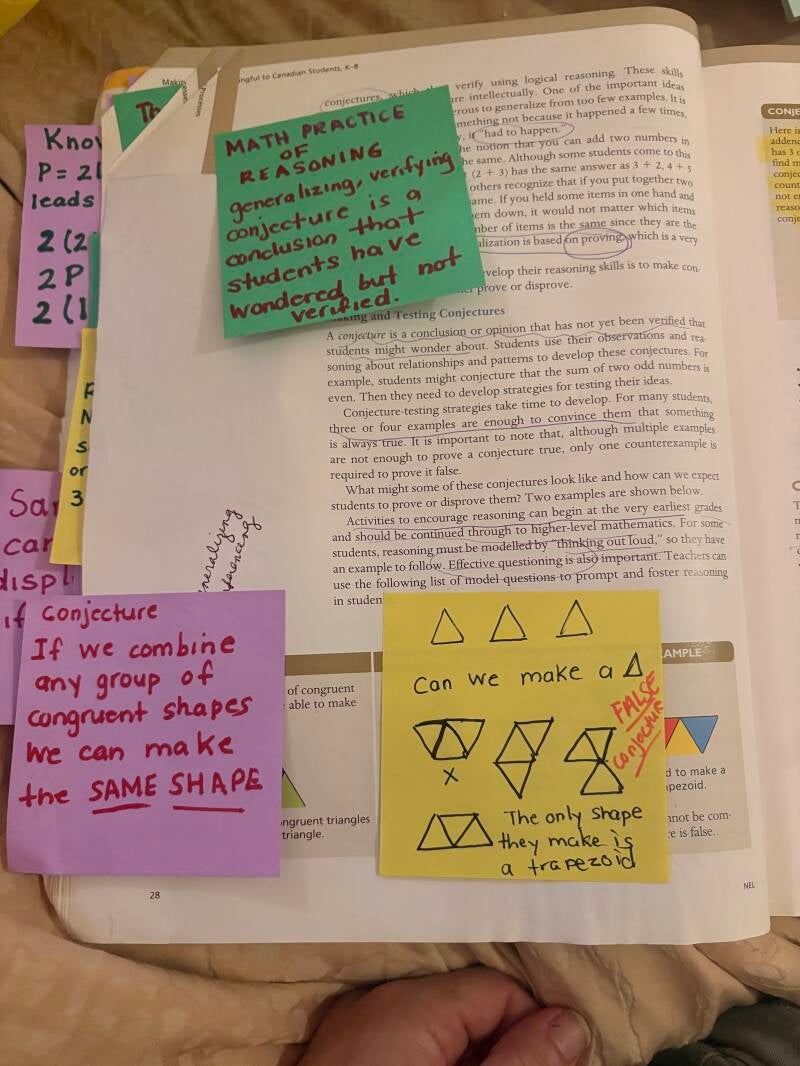 ingful to Canadian Students, K–8
Makin
Processes
conjectures, which verify using logical reasoning. These skills
re intellectually. One of the important ideas
erous to generalize from too few examples. It is
mething not because it happened a few times,
it "had to happen."
he notion that you can add two numbers in
he same. Although some students come to this
(2 + 3) has the same answer as 3 + 2, 4 + 5
others recognize that if you put together two
ame. If you held some items in one hand and
em down, it would not matter which items
mber of items is the same since they are the
alization is based on proving, which is a very
velop their reasoning skills is to make con-
prove or disprove.
Th
MATH PRACTICE
OF
REASONING
generalizing, verifying
conjecture is a
conclusion that
students have
wondered but not
verified.
Know
P = 2(
leads
2(2
2P
2(1
N
S
or
3
Sa
can
displ
if
king and Testing Conjectures
A conjecture is a conclusion or opinion that has not yet been verified that
students might wonder about. Students use their observations and rea-
soning about relationships and patterns to develop these conjectures. For
example, students might conjecture that the sum of two odd numbers is
even. Then they need to develop strategies for testing their ideas.
Conjecture-testing strategies take time to develop. For many students,
three or four examples are enough to convince them that something
is always true. It is important to note that, although multiple examples
are not enough to prove a conjecture true, only one counterexample is
required to prove it false.
What might some of these conjectures look like and how can we expect
students to prove or disprove them? Two examples are shown below.
Activities to encourage reasoning can begin at the very earliest grades
and should be continued through to higher-level mathematics. For some
students, reasoning must be modelled by "thinking out loud," so they have
an example to follow. Effective questioning is also important. Teachers can
use the following list of model questions to prompt and foster reasoning
in studen
neralizing
ferencing
Conjecture
If we combine
any group of
congruent shapes
we can make
the SAME SHAPE
of congruent
able to make
ngruent triangles
triangle.
Can we make a
FALSE
conjecture
X
The only shape
they make is
a trapezoid
AMPLE
d to make a
pezoid.
nnot be com-
re is false.
28
NEL
CONJE
Here is
adden
has 3 c
find m
conjec
count
not e
reaso
conje